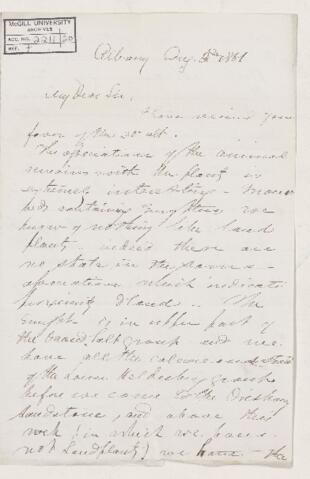 McGILL UNIVERSITY
ARCHIVES
ACC. NO. 2211/20
REF.
Albany Aug. 1881
My dear Sir,
I have received your
favor of the 20 ult.
The association of the animal
remains with the plants is
extremely interesting - In our
beds containing Eurypterus we
know of nothing like land
plants - indeed there are
no strata in the same
association which indicate
proximity of land. The
Eurypts. is in upper part of
the Onondaga salt group and we
have all the calcareous strata
of the Lower Helderberg group
before we come to the Oriskany
Sandstone, and above this
rock (in which we have
not land plants) we have the